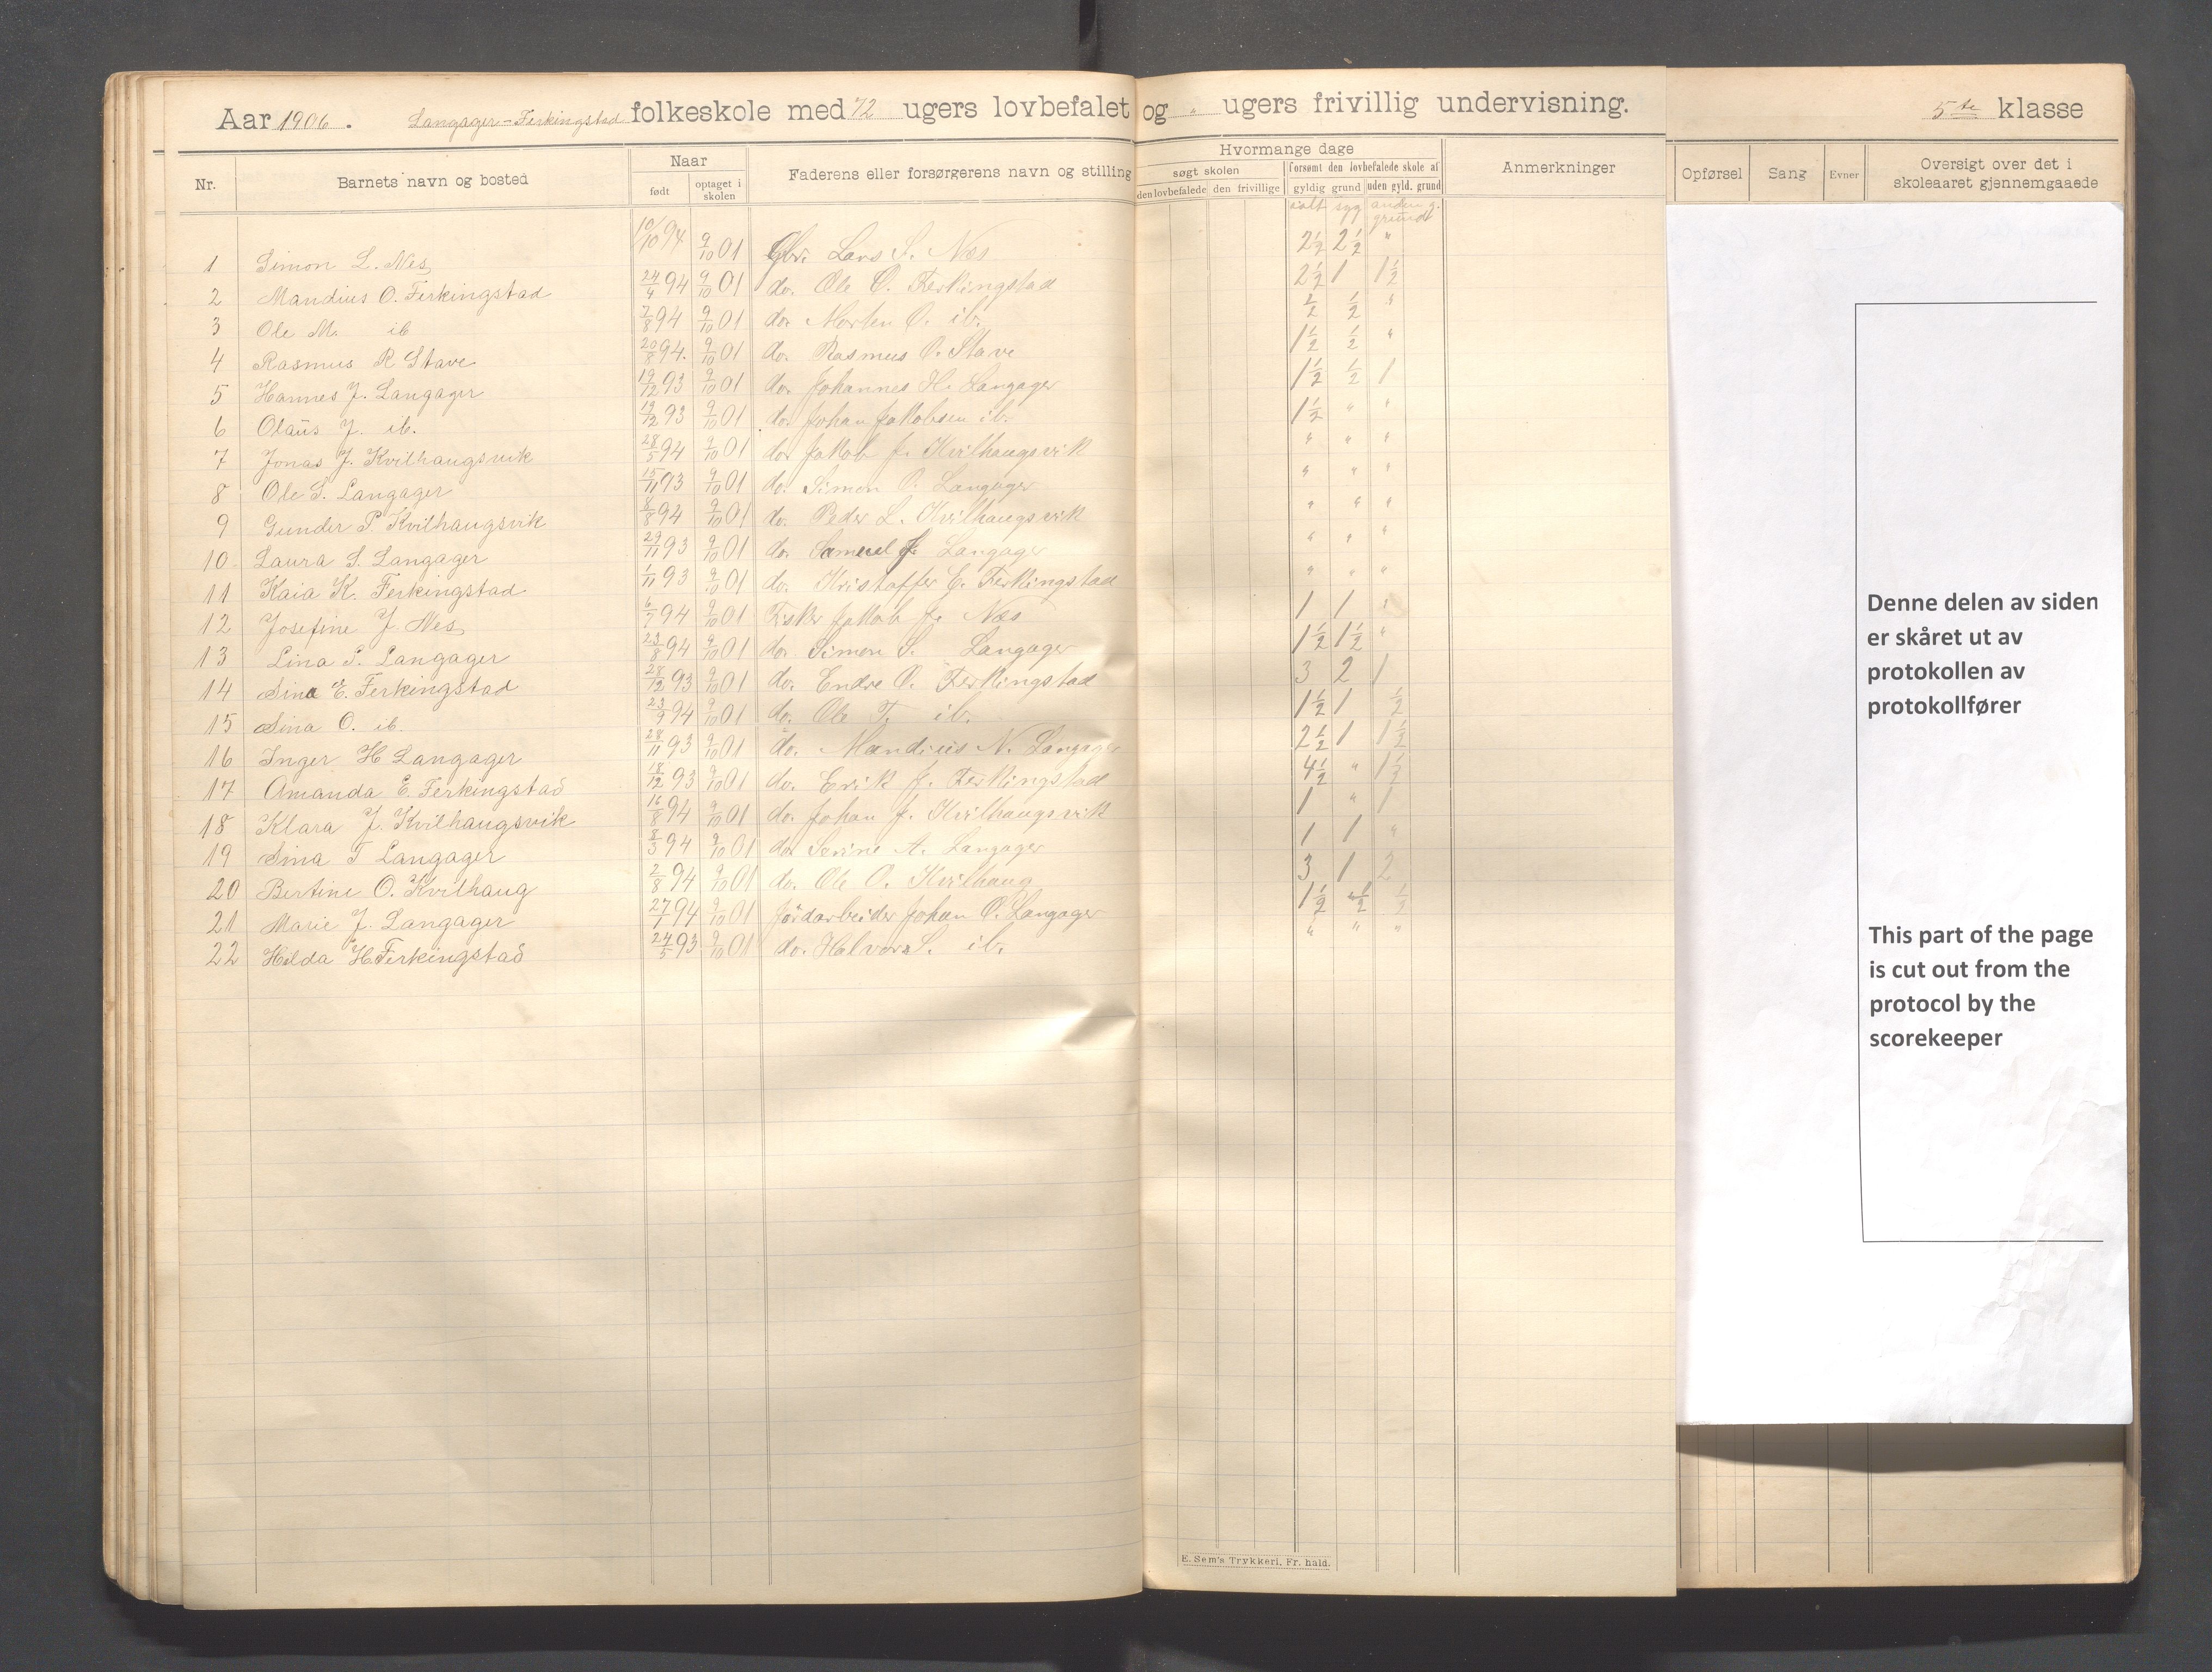 Aar 1906. Langager-Ferkingstad folkeskole med 12 ugers lovbefalet og " ugers frivillig undervisning. 5te klasse
Nr. Barnets navn og bosted Naar født optaget i skolen Faderens eller forsørgerens navn og stilling Hvormange dage søgt skolen den lovbefalede den frivillige forsømt den lovbefalede skole af gyldig grund uden gyld. grund Anmerkninger Opførsel Sang Evner Oversigt over det i skoleaaret gjennemgaaede
ialt syg anden g. grund
1 Simon L. Nes 10/10 94 9/10 01 Gbr. Lars S. Næs 2 1/2 2 1/2 "
2 Mandius O. Ferkingstad 24/4 94 9/10 01 do. Ole O. Ferkingstad 2 1/2 1 1 1/2
3 Ole M. ib 7/8 94 9/10 01 do. Morten O. ib. 1/2 "
4 Rasmus R Stave 20/8 94. 9/10 01 do. Rasmus O. Stave 1 1/2 1/2 "
5 Hannes J. Langager 19/12 93 9/10 01 do. Johannes H. Langager 1 1/2 1/2 1
6 Olaus J. ib. 19/12 93 9/10 01 do. Johan Jakobsen ib. 1 1/2 " "
7 Jonas J. Kvilhaugsvik 28/5 94 9/10 01 do. Jakob J. Kvilhaugsvik " " "
8 Ole S. Langager 15/11 93 9/10 01 do. Simon O. Langager " " "
9 Gunder P. Kvilhaugsvik 8/8 94 9/10 01 do. Peder L. Kvilhaugsvik " " "
10 Laura S. Langager 29/11 93 9/10 01 do. Samuel J. Langager " " "
11 Kaia K. Ferkingstad 1/11 93 9/10 01 do. Kristoffer E. Ferkingstad " " "
12 Josefine J. Nes 6/7 94 9/10 01 Fisker Jakob J. Næs 1 1 "
13 Lina S. Langager 23/8 94 9/10 01 do. Simon S. Langager 1 1/2 1 1/2 "
14 Sina E. Ferkingstad 28/12 93 9/10 01 do. Endre O. Ferkingstad 3 2 1
15 Sina O. ib 23/9 94 9/10 01 do. Ole T. ib. 1 1/2 1 1/2
16 Inger H Langager 28/11 93 9/10 01 do. Mandius N. Langager 2 1/2 1 1 1/2
17 Amanda E. Ferkingstad 18/12 93 9/10 01 do. Erik J. Ferkingstad 4 1/2 " 1 1/2
18 Klara J. Kvilhaugsvik 16/8 94 9/10 01 do. Johan J. Kvilhaugsvik 1 " 1
19 Sina T Langager 8/3 94 9/10 01 do. Serine A. Langager 1 1 "
20 Bertine O. Kvilhaug 2/8 94 9/10 01 do. Ole O. Kvilhaug 3 1 2
21 Marie J. Langager 27/1 94 9/10 01 Jordarbeider Johan O. Langager 1 1/2 1/2
22 Hilda H. Ferkingstad 24/5 93 9/10 01 do. Halvor S. ib. " " "
E. Sem's Trykkeri, Fr. hald.
Denne delen av siden
er skåret ut av
protokollen av
protokollfører
This part of the page
is cut out from the
protocol by the
scorekeeper